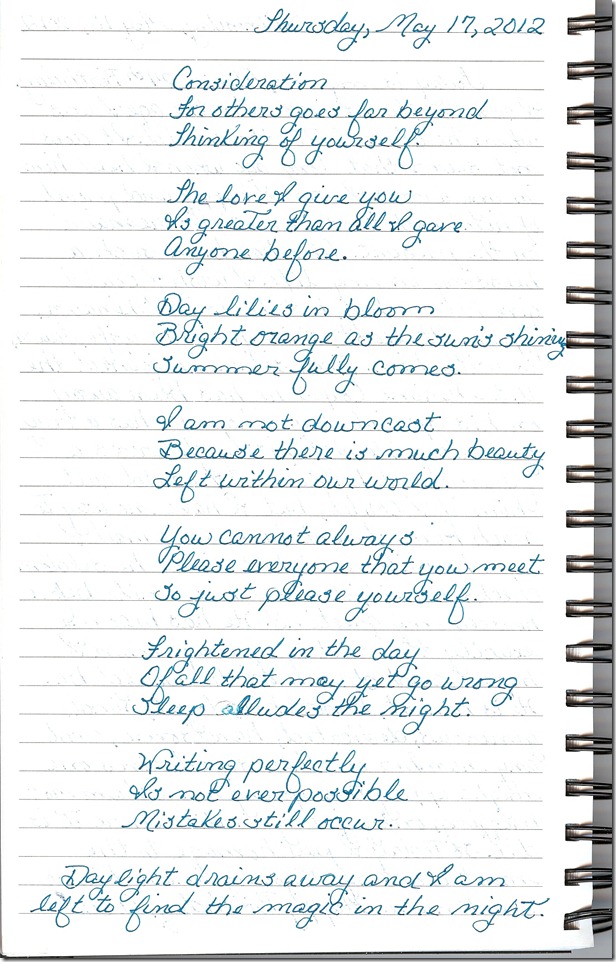 Thursday, May 17, 2012
Consideration
For others goes far beyond
Thinking of yourself.
The love I give you
Is greater than all I gave
Anyone before.
Day lilies in bloom
Bright orange as the sun's shining
Summer fully comes.
I am not downcast
Because there is much beauty
Left within our world.
You cannot always
Please everyone that you meet
So just please yourself.
Frightened in the day
Of all that may yet go wrong
Sleep alludes the night.
Writing perfectly
Is not ever possible
Mistakes still occur.
Daylight drains away and I am
left to find the magic in the night.